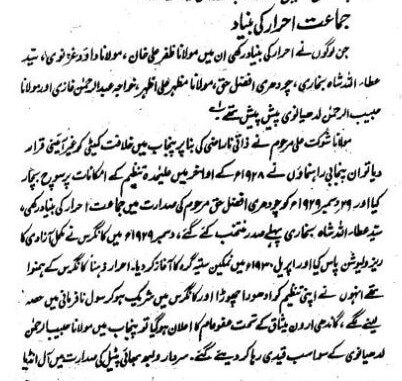 جماعت احرار کی بنیاد
جن لوگوں نے احرار کی بنیاد رکھی ان میں مولانا ظفر علی خان، مولانا داؤد غزنوی، سید
عطاء اللہ شاہ بخاری، چودھری افضل حق، مولانا مظہر علی اظہر، خواجہ عبدالرحمٰن غازی اور مولانا
حبیب الرحمٰن لدھیانوی پیش پیش تھے
مولانا شوکت علی مرحوم نے ذاتی ناراضی کی بنا پر پنجاب میں خلافت کمیٹی کو غیر آئینی قرار
دیا تو ان پنجابی راہنماؤں نے ۱۹۲۸ء کے اواخر میں علیحدہ تنظیم کے امکانات پر سوچ بچار
کیا اور ۲۹ دسمبر ۱۹۲۹ء کو چودھری افضل حق مرحوم کی صدارت میں جماعت احرار کی بنیاد رکھی،
سید عطاء اللہ شاہ بخاری پہلے صدر منتخب کئے گئے، دسمبر ۱۹۲۹ء میں کانگرس نے مکمل آزادی کا
ریزولیوشن پاس کیا اور اپریل ۱۹۳۰ء میں نمکین ستیہ گرہ کا آغاز کر دیا۔ احرار ذہناً کانگرس کے ہمنوا
تھے انہوں نے اپنی تنظیم کو ادھورا چھوڑا اور کانگرس میں شریک ہو کر سول نافرمانی میں حصہ
لینے لگے، گاندھی ارون میثاق کے تحت مفاہمہ کا اعلان ہو گیا تو پنجاب میں مولانا حبیب الرحمٰن
لدھیانوی کے سوا سب قیدی رہا کر دیئے گئے۔ سردار ولبھ بھائی پٹیل کی صدارت میں آل انڈیا